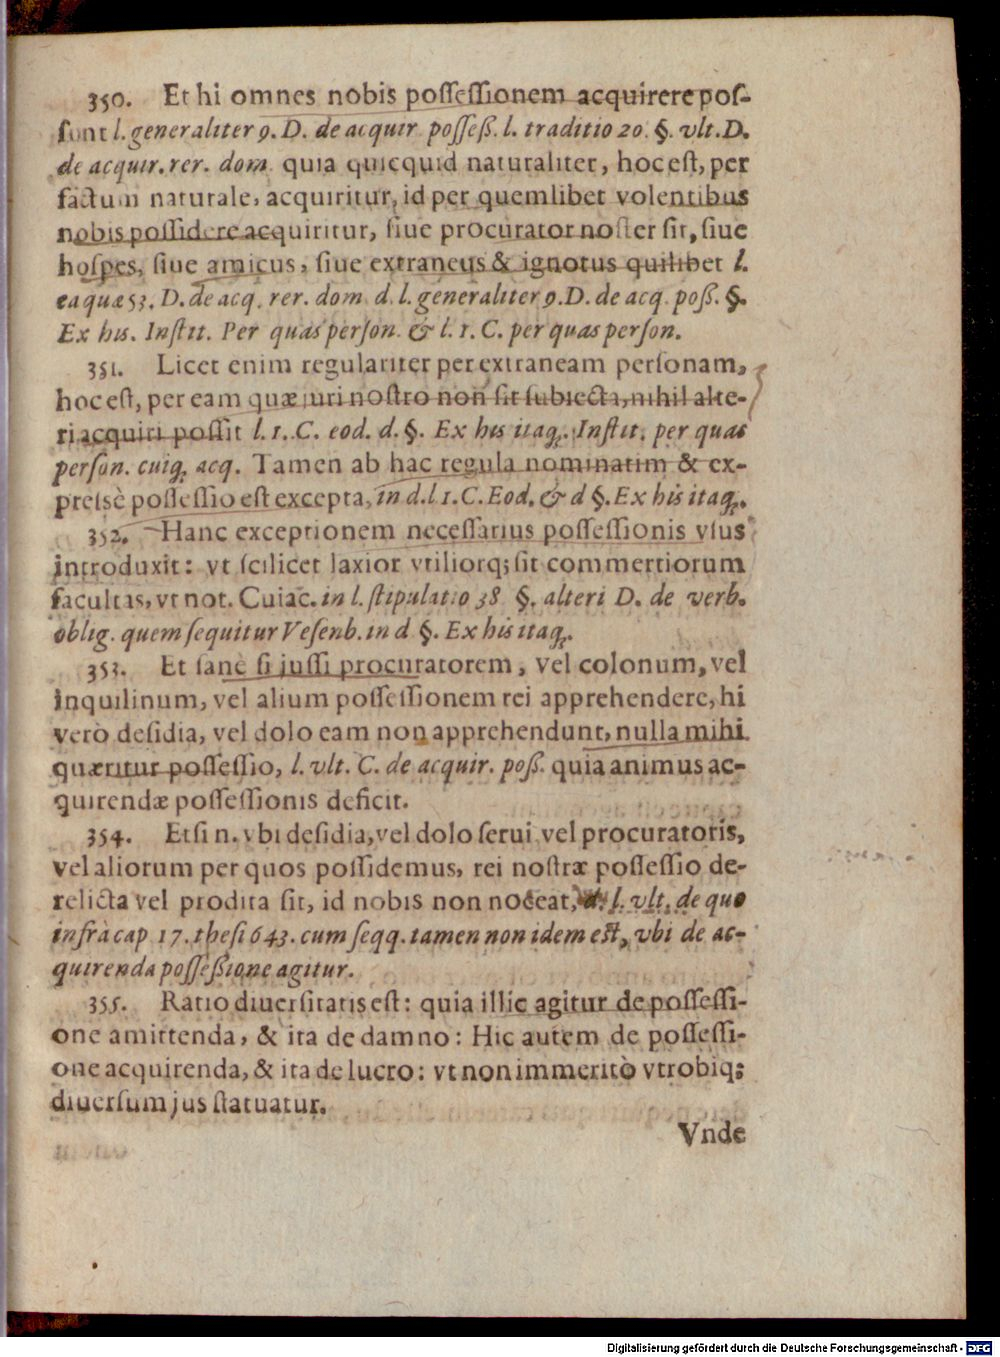 350. Et hi omnes nobis poſſeſſionem acquirere poſ-
ſunt l. generaliter 9. D. de acquir poſſeß. l. traditio 20. §. vlt. D.
de acquir. rer. dom. quia quicquid naturaliter, hoc eſt, per
factum naturale, acquiritur, id per quemlibet volentibus
nobis poſſidere acquiritur, ſiue procurator noſter ſit, ſiue
hoſpes, ſiue amicus, ſiue extraneus & ignotus quilibet l.
ea quæ 53. D. de acq. rer. dom. d. l. generaliter 9. D. de acq. poß. §.
Ex his. Inſtit. Per quas perſon. & l. 1. C. per quas perſon.
351. Licet enim regulariter per extraneam perſonam,
hoc eſt, per eam quæ juri noſtro non ſit ſubiecta, nihil alte-
ri acquiri poſſit l. 1. C. eod. d. §. Ex his itaq;. Inſtit. per quas
perſon. cuiq; acq. Tamen ab hac regula nominatim & ex-
preſsè poſſeſſio eſt excepta, in d. l 1. C. Eod. & d §. Ex his itaq;.
352. Hanc exceptionem neceſſarius poſſeſſionis vſus
introduxit: vt ſcilicet laxior vtiliorq; ſit commertiorum
facultas, vt not. Cuiac. in l. ſtipulatio 38 §. alteri D. de verb.
oblig. quem ſequitur Veſenb. in d §. Ex his itaq;.
353. Et ſanè ſi juſſi procuratorem, vel colonum, vel
inquilinum, vel alium poſſeſſionem rei apprehendere, hi
verò deſidia, vel dolo eam non apprehendunt, nulla mihi
quæritur poſſeſſio, l. vlt. C. de acquir. poß. quia animus ac-
quirendæ poſſeſſionis deficit.
354. Etſi n. vbi deſidia, vel dolo ſerui vel procuratoris,
vel aliorum per quos poſſidemus, rei noſtræ poſſeſſio de-
relicta vel prodita ſit, id nobis non noceat, d. l. vlt. de quo
infrà cap 17. theſi 643. cum ſeqq. tamen non idem eſt, vbi de ac-
quirenda poſſeßione agitur.
355. Ratio diuerſitatis eſt: quia illic agitur de poſſeſſi-
one amittenda, & ita de damno: Hic autem de poſſeſſi-
one acquirenda, & ita de lucro: vt non immeritò vtrobiq;
diuerſum jus ſtatuatur.
Vnde
Digitalisierung gefördert durch die Deutsche Forschungsgemeinschaft - DFG